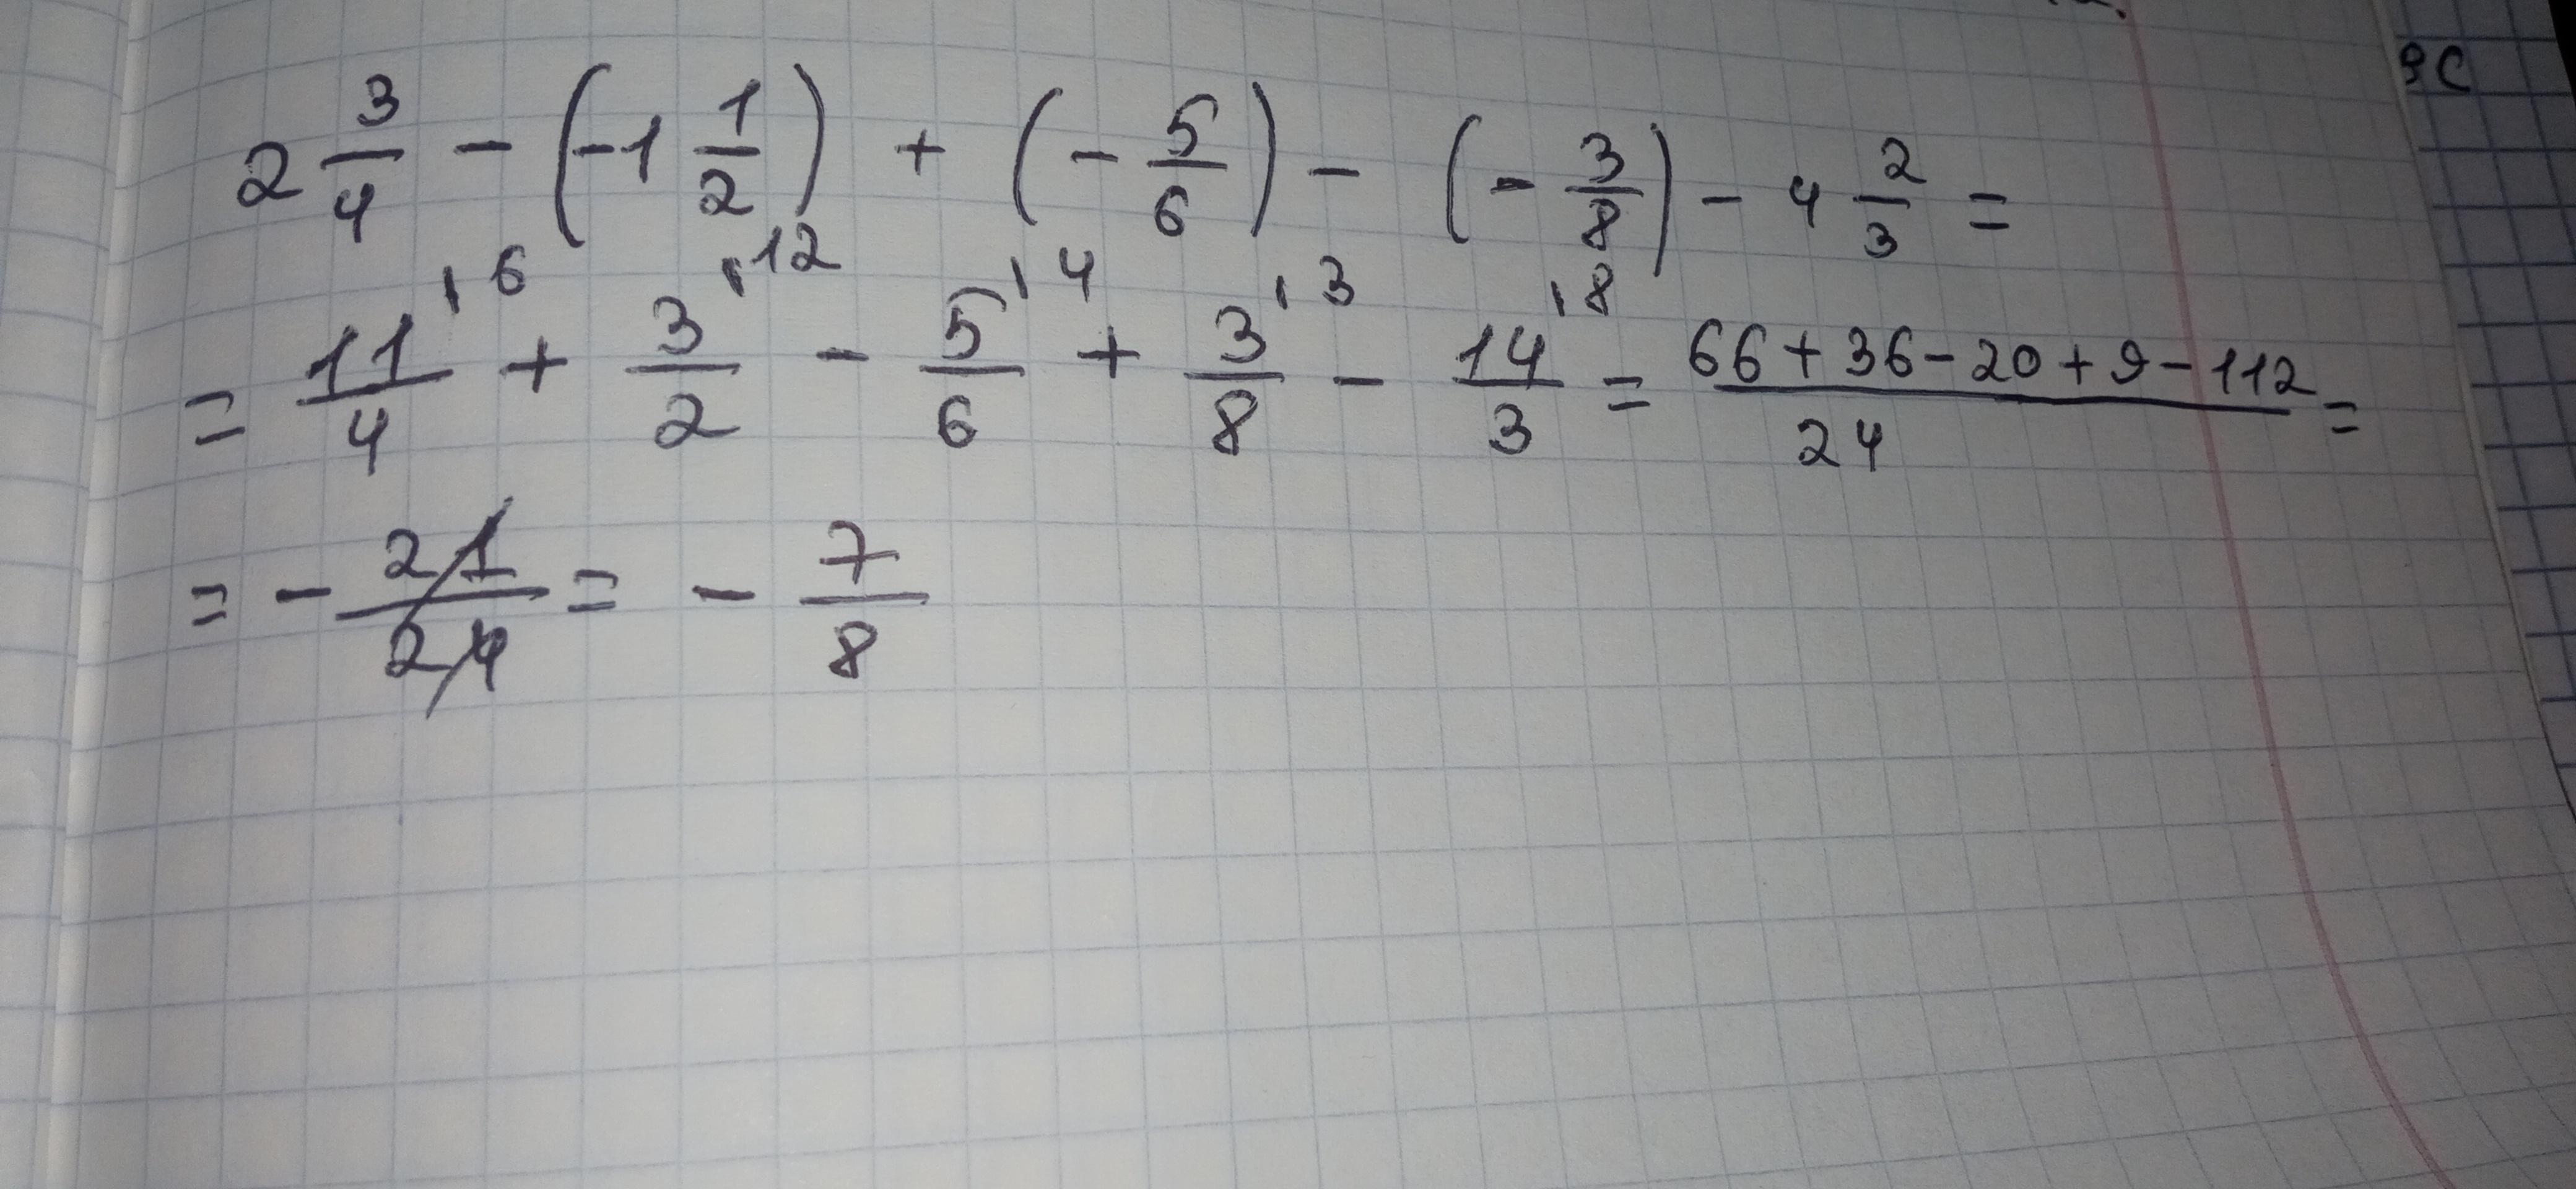 2 3/4 - (-1 1/2) + (- 5/6) - (- 3/8) - 4 2/3 =
= 11/4 '6 + 3/2 '12 - 5/6 '4 + 3/8 '3 - 14/3 '8 = 66+36-20+9-112/24 =
= - 21/24 = - 7/8